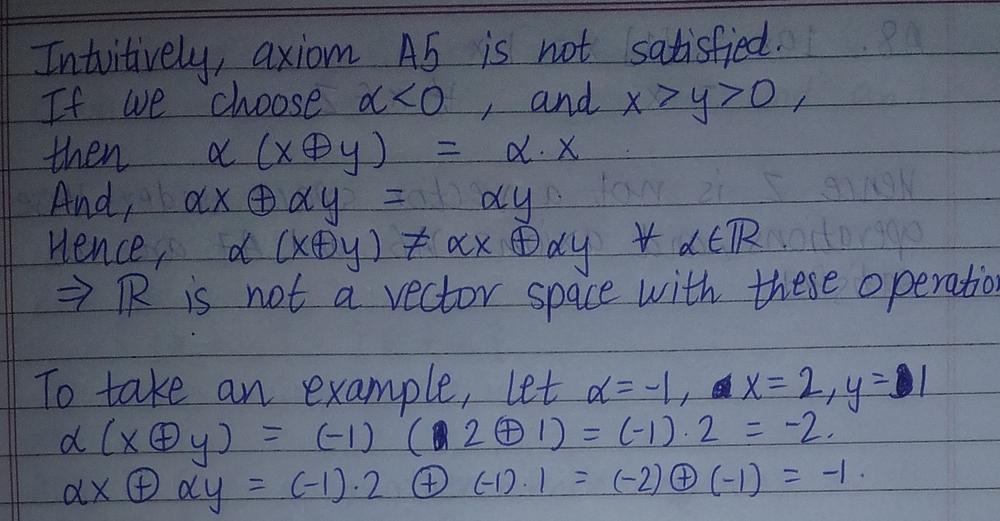 Intuitively, axiom A5 is not satisfied.
If we choose α<0, and x>y>0,
then α(x⊕y) = α.x
And, αx⊕αy = αy.
Hence, α(x⊕y) ≠ αx⊕αy ∀ α∈ℝ.
⇒ ℝ is not a vector space with these operation
To take an example, let α=-1, x=2, y=1
α(x⊕y) = (-1)(2⊕1) = (-1).2 = -2.
αx⊕αy = (-1).2 ⊕ (-1).1 = (-2)⊕(-1) = -1.